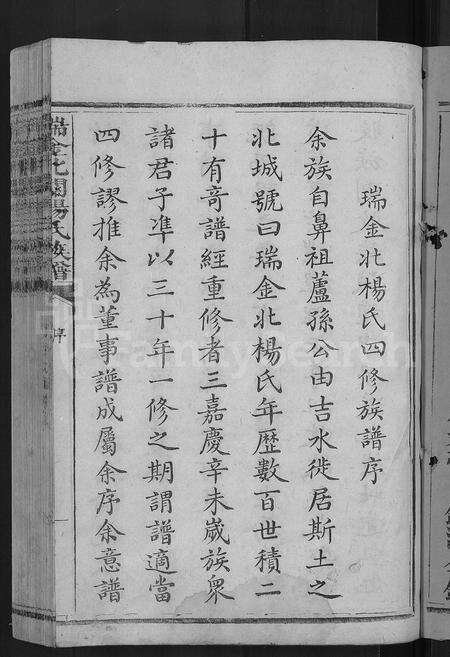 瑞金北楊氏四修族譜序
余族自鼻祖蘆孫公由吉水徙居斯土之
北城號曰瑞金北楊氏年歷數百世積二
十有奇譜經重修者三嘉慶辛未歲族眾
諸君子準以三十年一修之期謂譜適當
四修謬推余為董事譜成屬余序余意譜
序